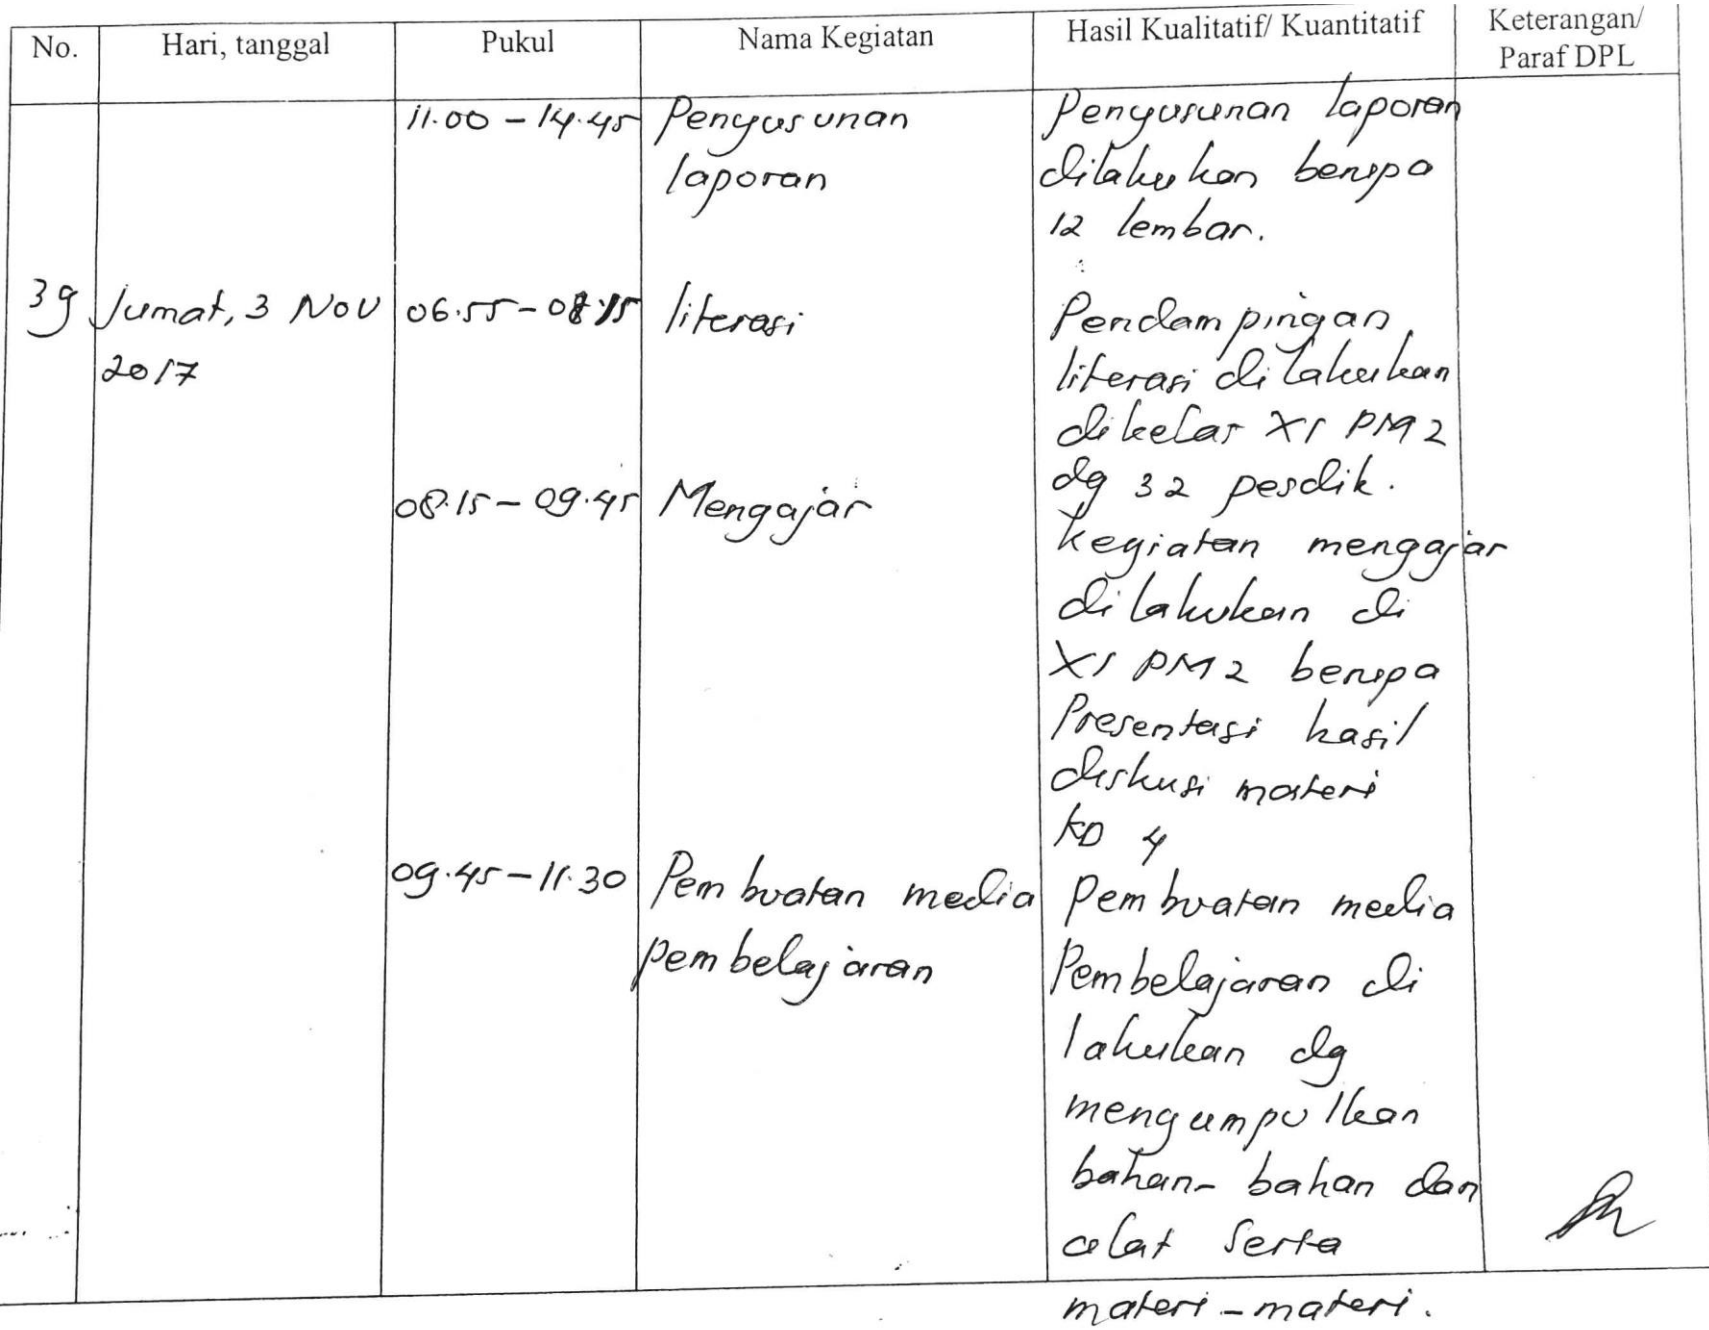 No. Hari, tanggal Pukul Nama Kegiatan Hasil Kualitatif/ Kuantitatif Keterangan/
Paraf DPL
11.00 - 14.45 Penyusunan Penyusunan laporan
laporan dilakukan berupa
12 lembar.
39 Jumat, 3 Nov 06.55 - 08.15 literasi Pendampingan
2017 literasi dilakukan
dikelas XI PM2
dg 32 pesdik.
08.15 - 09.45 Mengajar kegiatan mengajar
dilakukan di
XI PM2 berupa
Presentasi hasil
diskusi materi
KD 4
09.45 - 11.30 Pembuatan media Pembuatan media
pembelajaran Pembelajaran di
lakukan dg
mengumpulkan
bahan- bahan dan
alat serta
materi - materi.